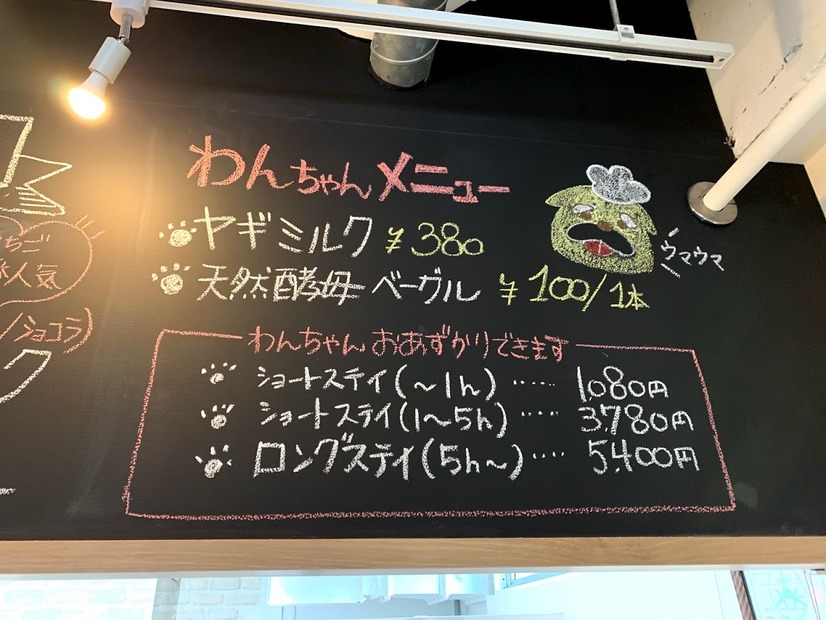 わんちゃんメニュー
ヤギミルク ¥380
天然酵母ベーグル ¥100/1本
ウマウマ
わんちゃんおあずかりできます
ショートステイ(〜1h) ‥‥‥ 1,080円
ショートステイ(1〜5h) ‥‥ 3,780円
ロングステイ(5h〜) ‥‥ 5,400円
ちご
人気
/ショコラ)
ク